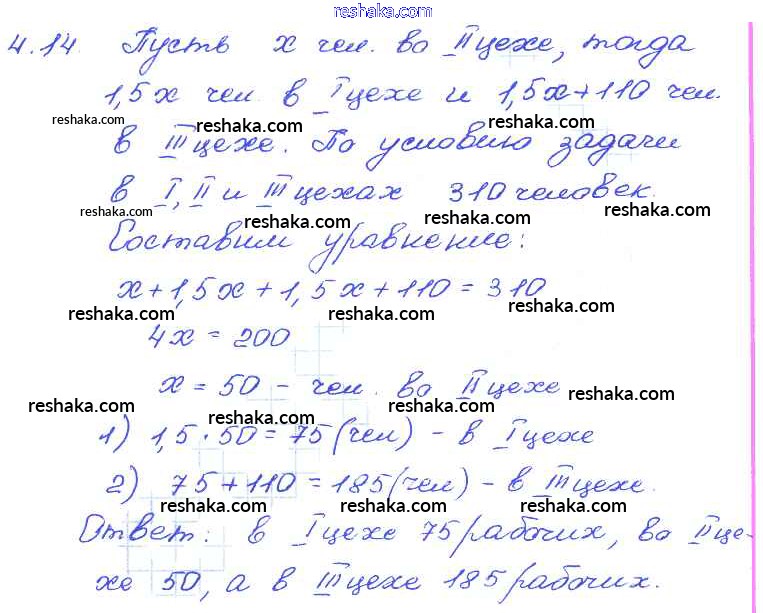 reshaka.com
4.14. Пусть x чел. во II цехе, тогда
1,5x чел. в I цехе и 1,5x+110 чел.
reshaka.com reshaka.com reshaka.com
в III цехе. По условию задачи
в I, II и III цехах 310 человек.
reshaka.com reshaka.com reshaka.com
Составим уравнение:
x+1,5x+1,5x+110=310
reshaka.com reshaka.com reshaka.com
4x = 200
x = 50 - чел. во II цехе
reshaka.com reshaka.com reshaka.com
1) 1,5·50=75(чел) - в I цехе
2) 75+110=185(чел) - в III цехе.
Ответ: в I цехе 75 рабочих, во II це-
хе 50, а в III цехе 185 рабочих.